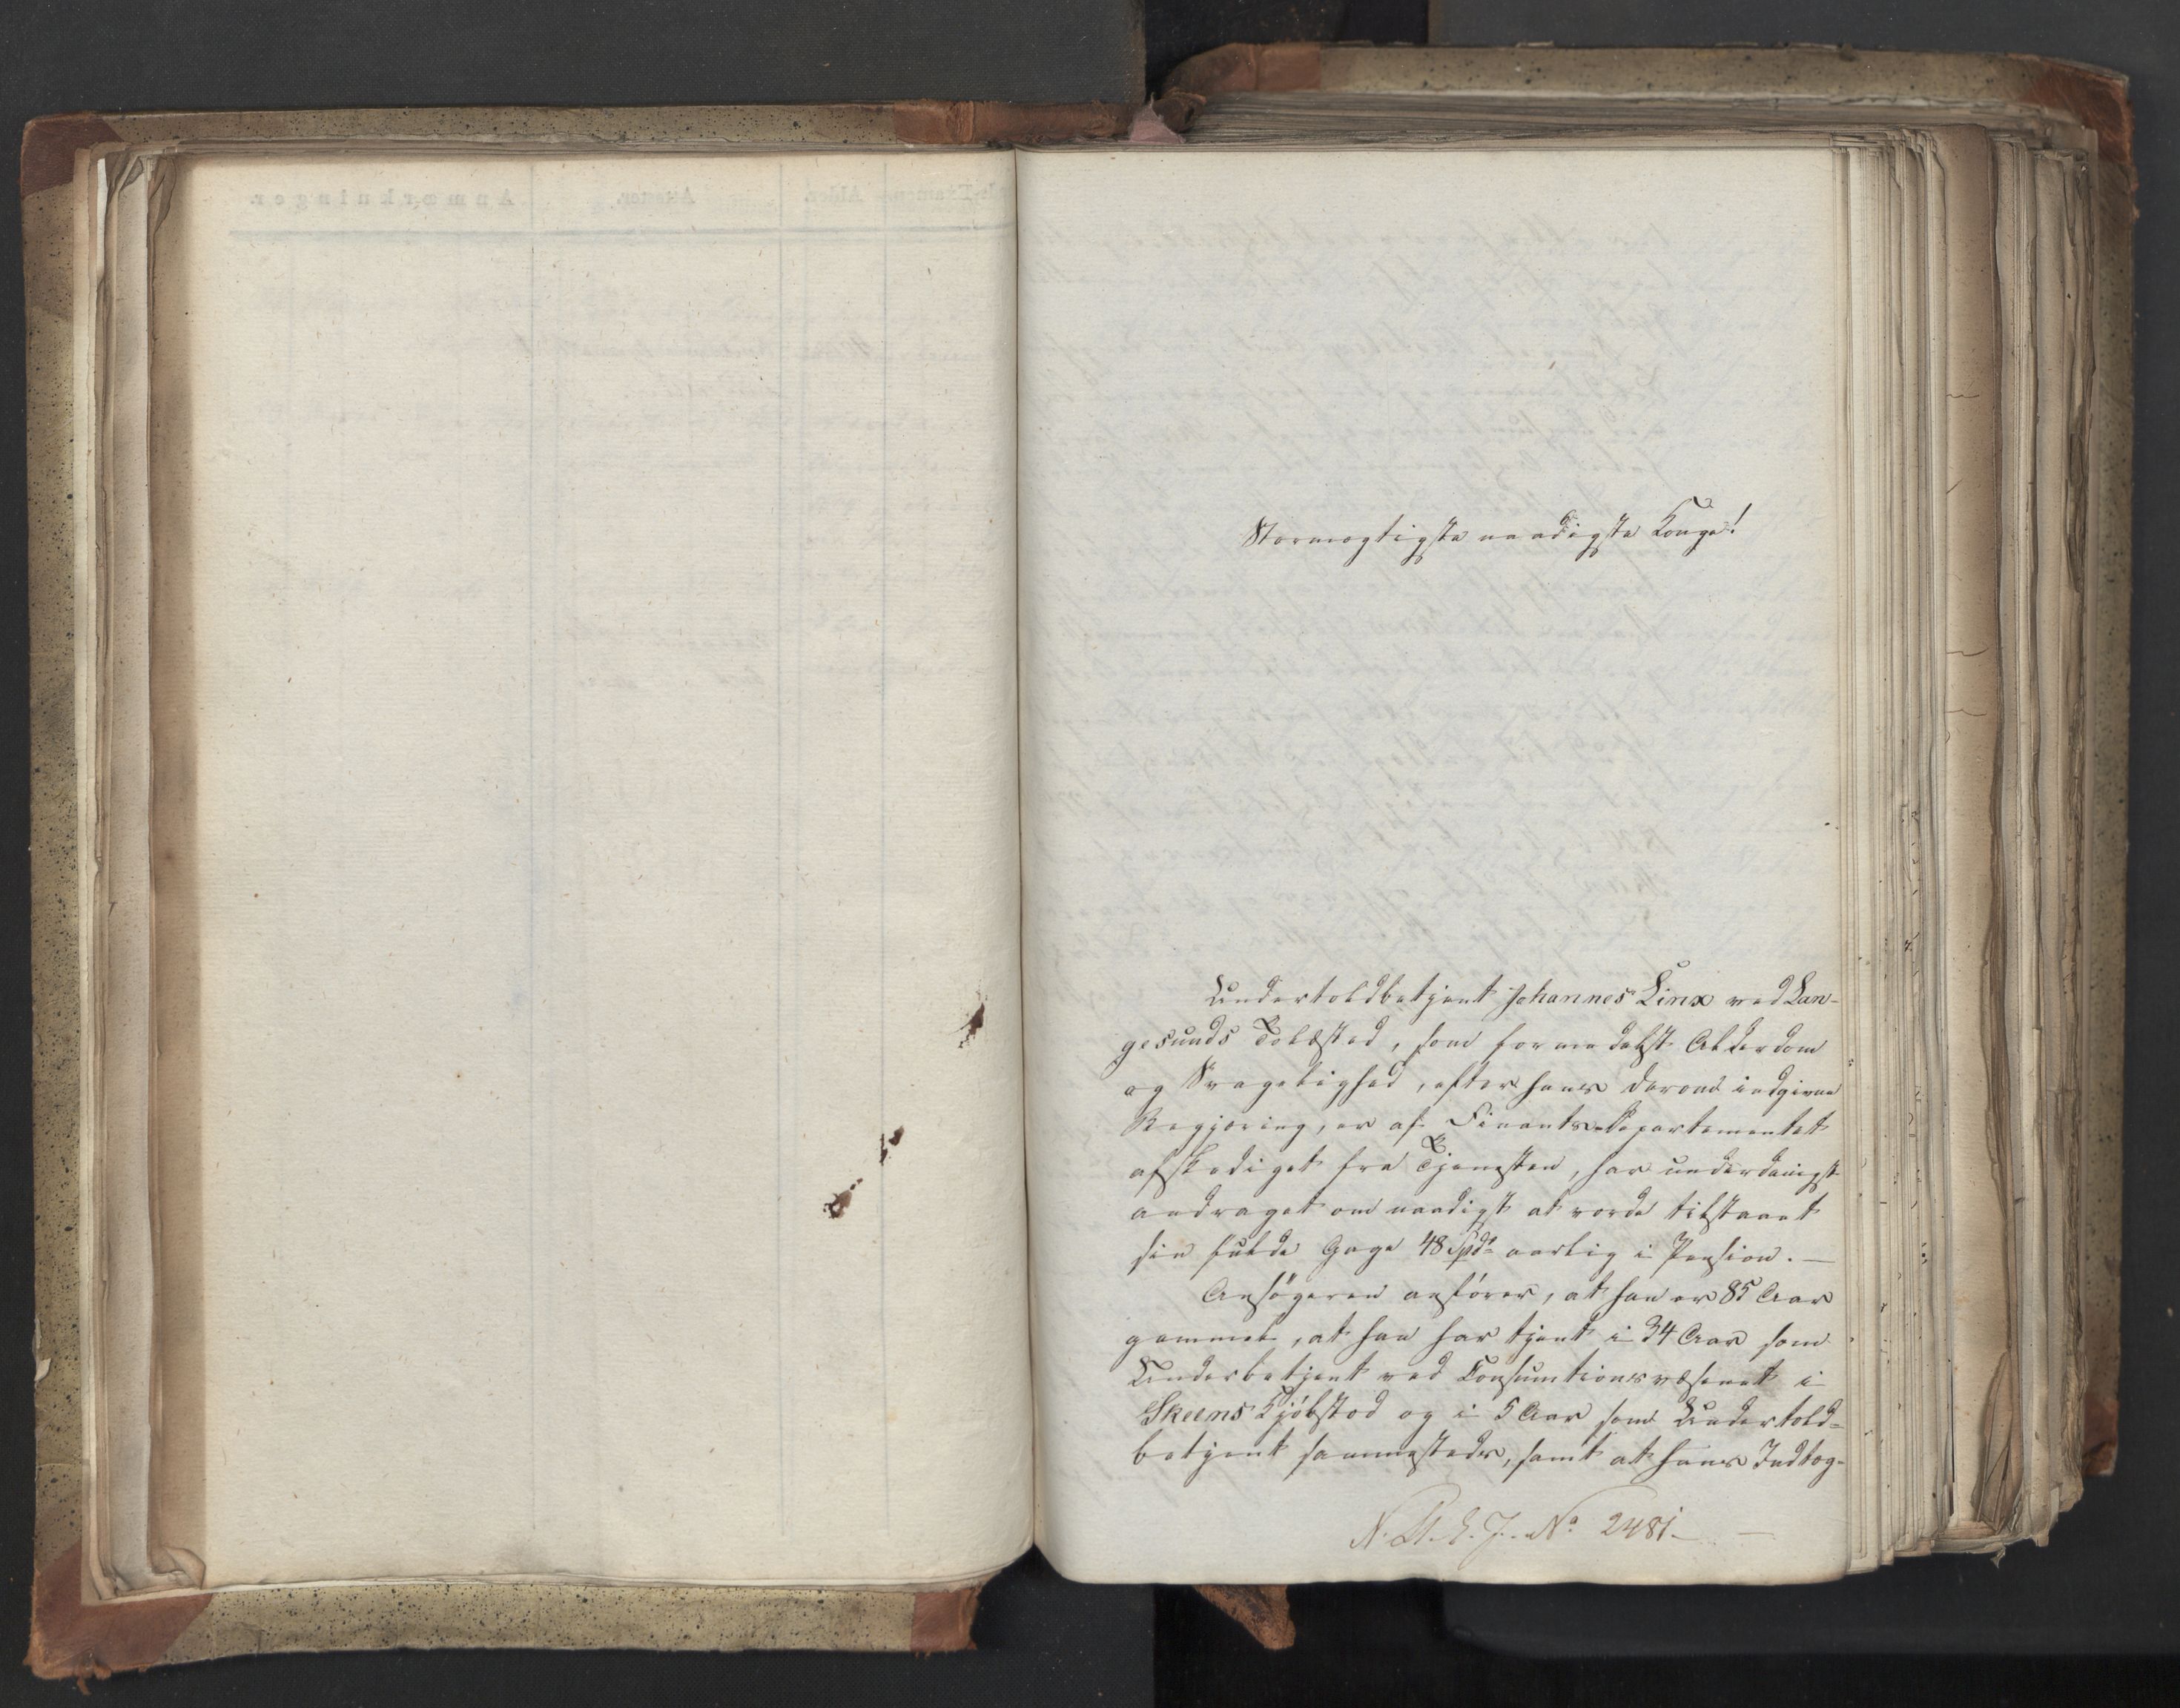 Stormægtigste naadigste Konge!
Undertoldbetjent Johannes Linx ved Lan-
gesunds Toldsted, som formedelst Alderdom
og Svagelighed, efter hans derom indgivne
Begjæring, er af Finants-Departementet
afskediget fra Tjenesten, har underdanigst
andraget om naadigst at vorde tilstaaet
sin fulde Gage 48 Spd aarlig i Pension. —
Ansøgeren anfører, at han er 85 Aar
gammel, at han har tjent i 34 Aar som
Underbetjent ved Consumtionsvæsenet i
Skeens Kjøbstad og i 5 Aar som Undertold-
betjent sammesteds, samt at hans Indtæg-
No 2481. —